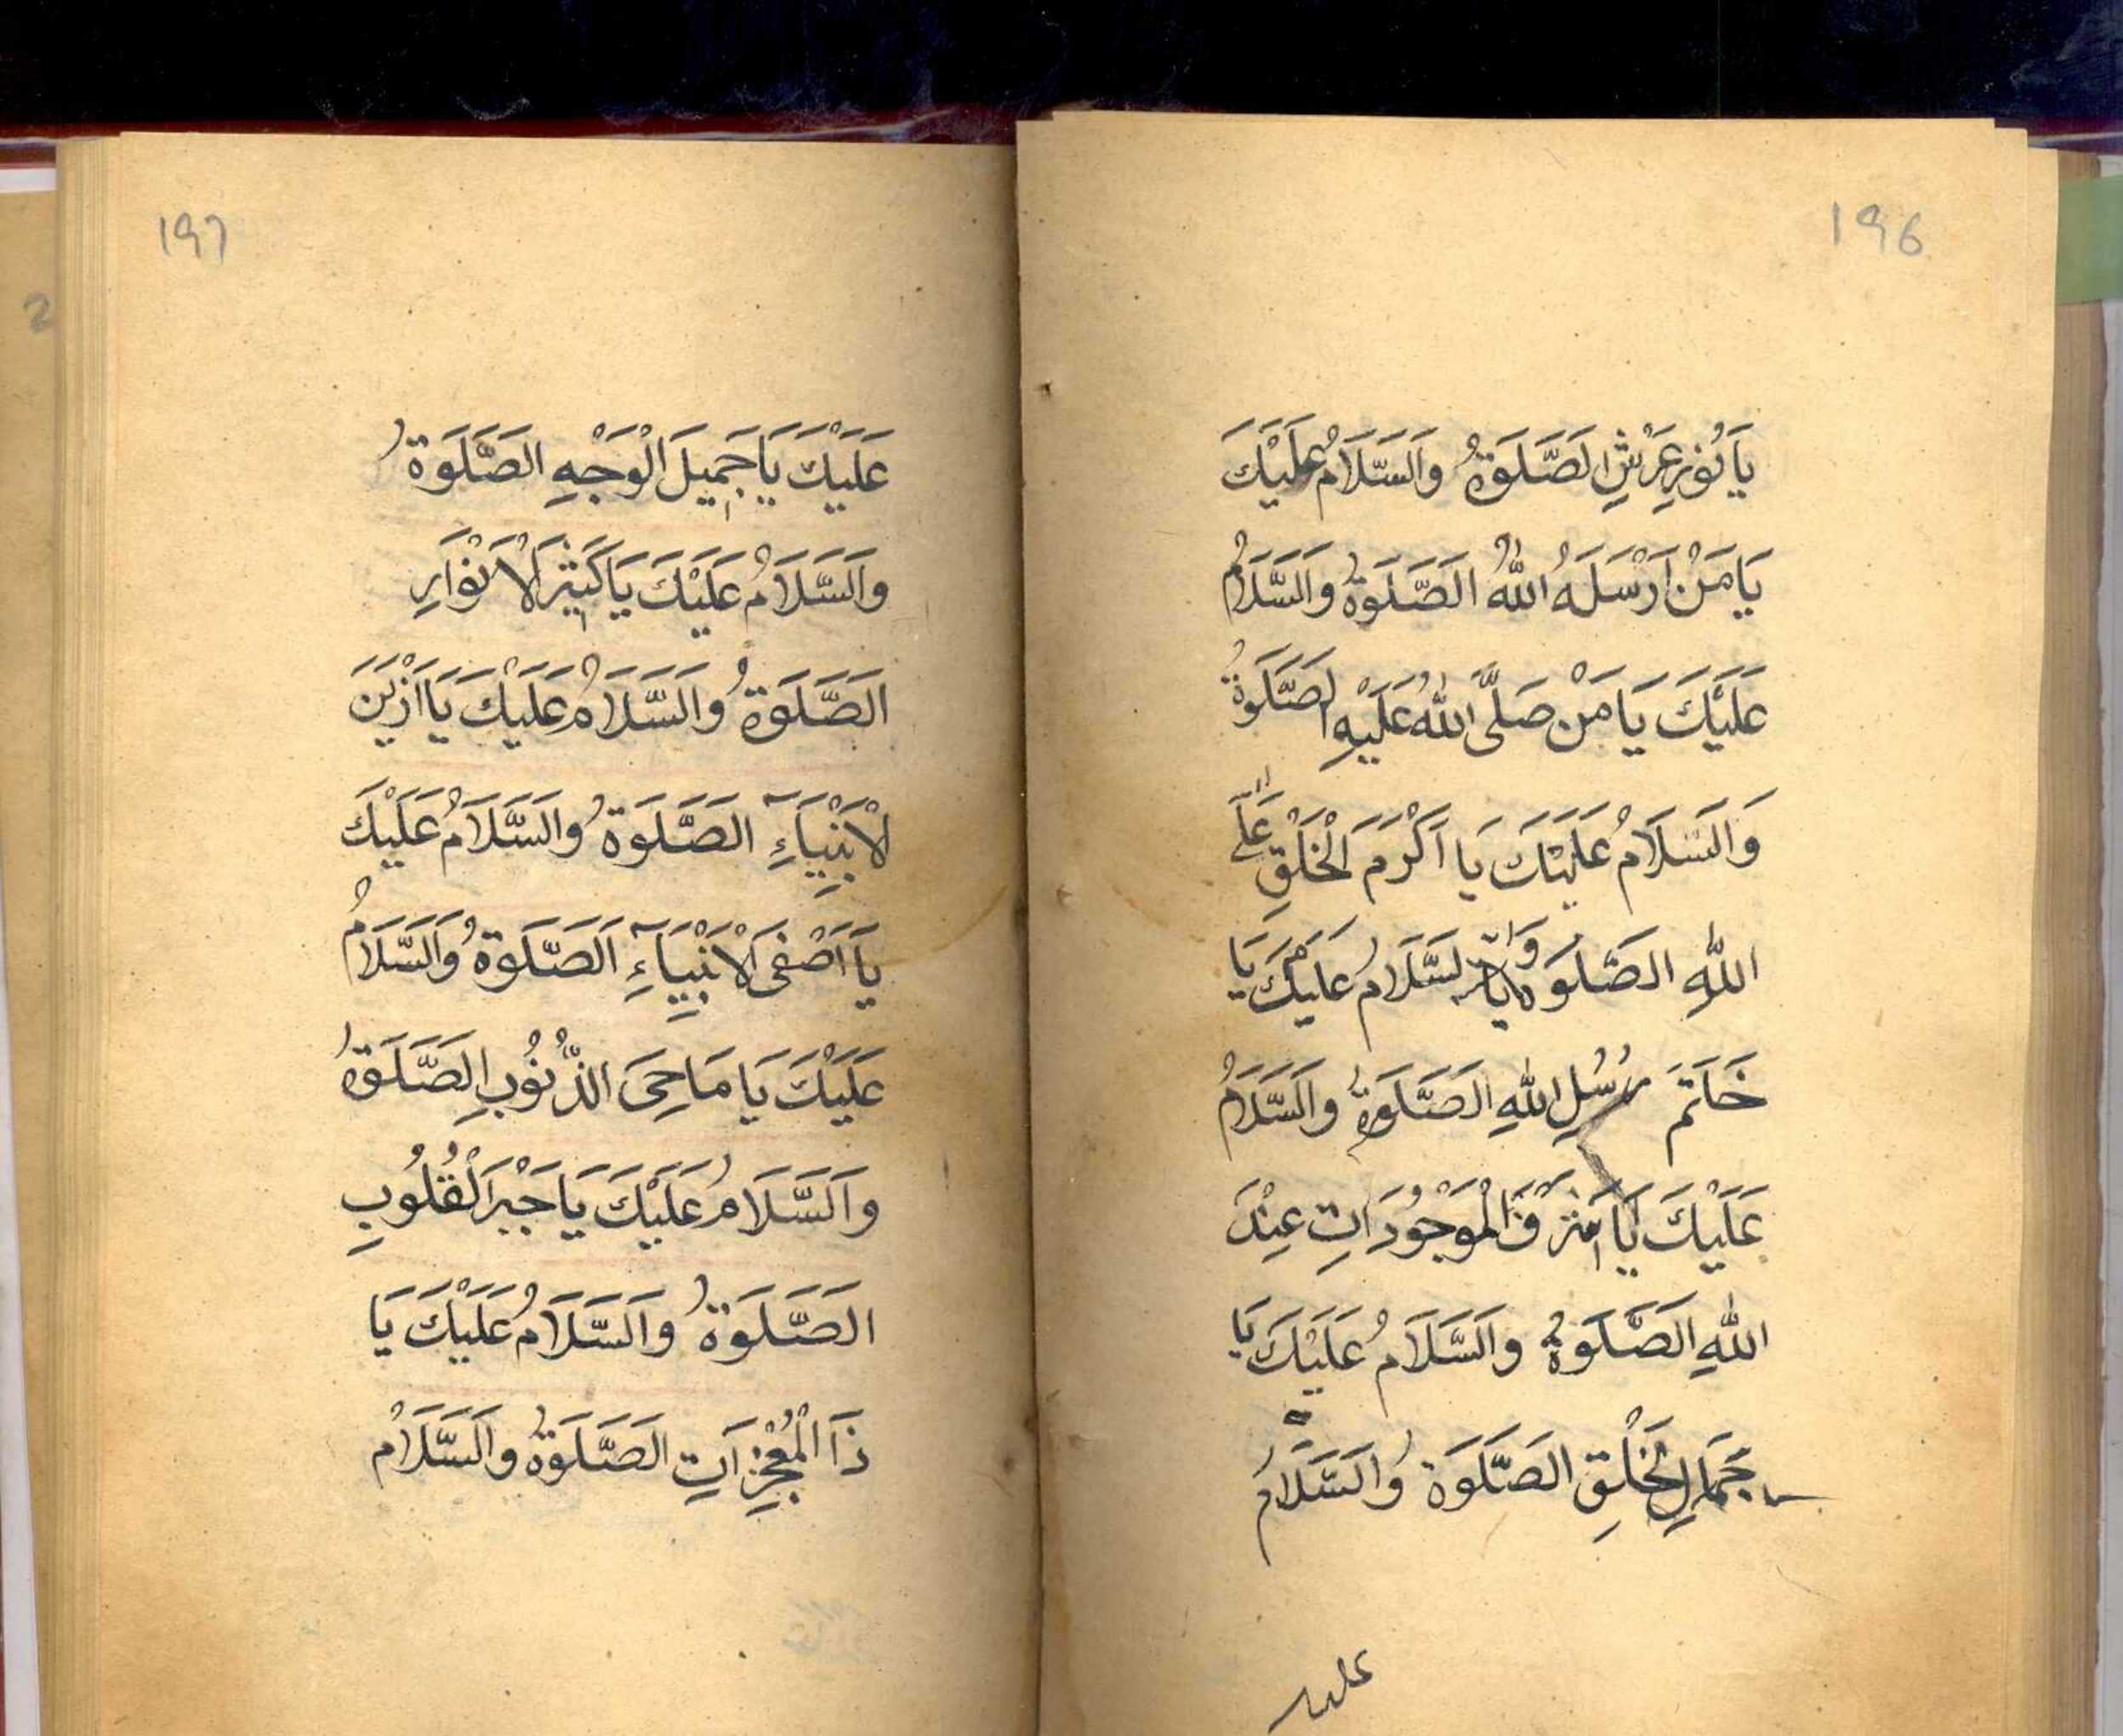 196
يَا نُوْرِ عَرْشِ الصَّلَوةُ وَالسَّلَامُ عَلَيْكَ
يَا مَنْ اَرْسَلَهُ اللّٰهُ الصَّلَوةُ وَالسَّلَامُ
عَلَيْكَ يَا مَنْ صَلَّى اللّٰهُ عَلَيْهِ الصَّلَوةُ
وَالسَّلَامُ عَلَيْكَ يَا اَكْرَمَ الْخَلْقِ عَلَى
اللّٰهِ الصَّلَوةُ وَالسَّلَامُ عَلَيْكَ يَا
خَاتَمَ رُسُلِ اللّٰهِ الصَّلَوةُ وَالسَّلَامُ
عَلَيْكَ يَا الْمَوْجُوْدَاتِ عِنْدَ
اللّٰهِ الصَّلَوةُ وَالسَّلَامُ عَلَيْكَ يَا
جَمَالِ الْخَلْقِ الصَّلَوةُ وَالسَّلَامُ
عليك
197
عَلَيْكَ يَا جَمِيْلَ الْوَجْهِ الصَّلَوةُ
وَالسَّلَامُ عَلَيْكَ يَا كَثِيْرَ الْاَنْوَارِ
الصَّلَوةُ وَالسَّلَامُ عَلَيْكَ يَا اَزْيَنَ
الْاَنْبِيَآءِ الصَّلَوةُ وَالسَّلَامُ عَلَيْكَ
يَا اَصْفَى الْاَنْبِيَآءِ الصَّلَوةُ وَالسَّلَامُ
عَلَيْكَ يَا مَاحِىَ الذُّنُوْبِ الصَّلَوةُ
وَالسَّلَامُ عَلَيْكَ يَا جَبْرَ الْقُلُوْبِ
الصَّلَوةُ وَالسَّلَامُ عَلَيْكَ يَا
ذَا الْمُعْجِزَاتِ الصَّلَوةُ وَالسَّلَامُ